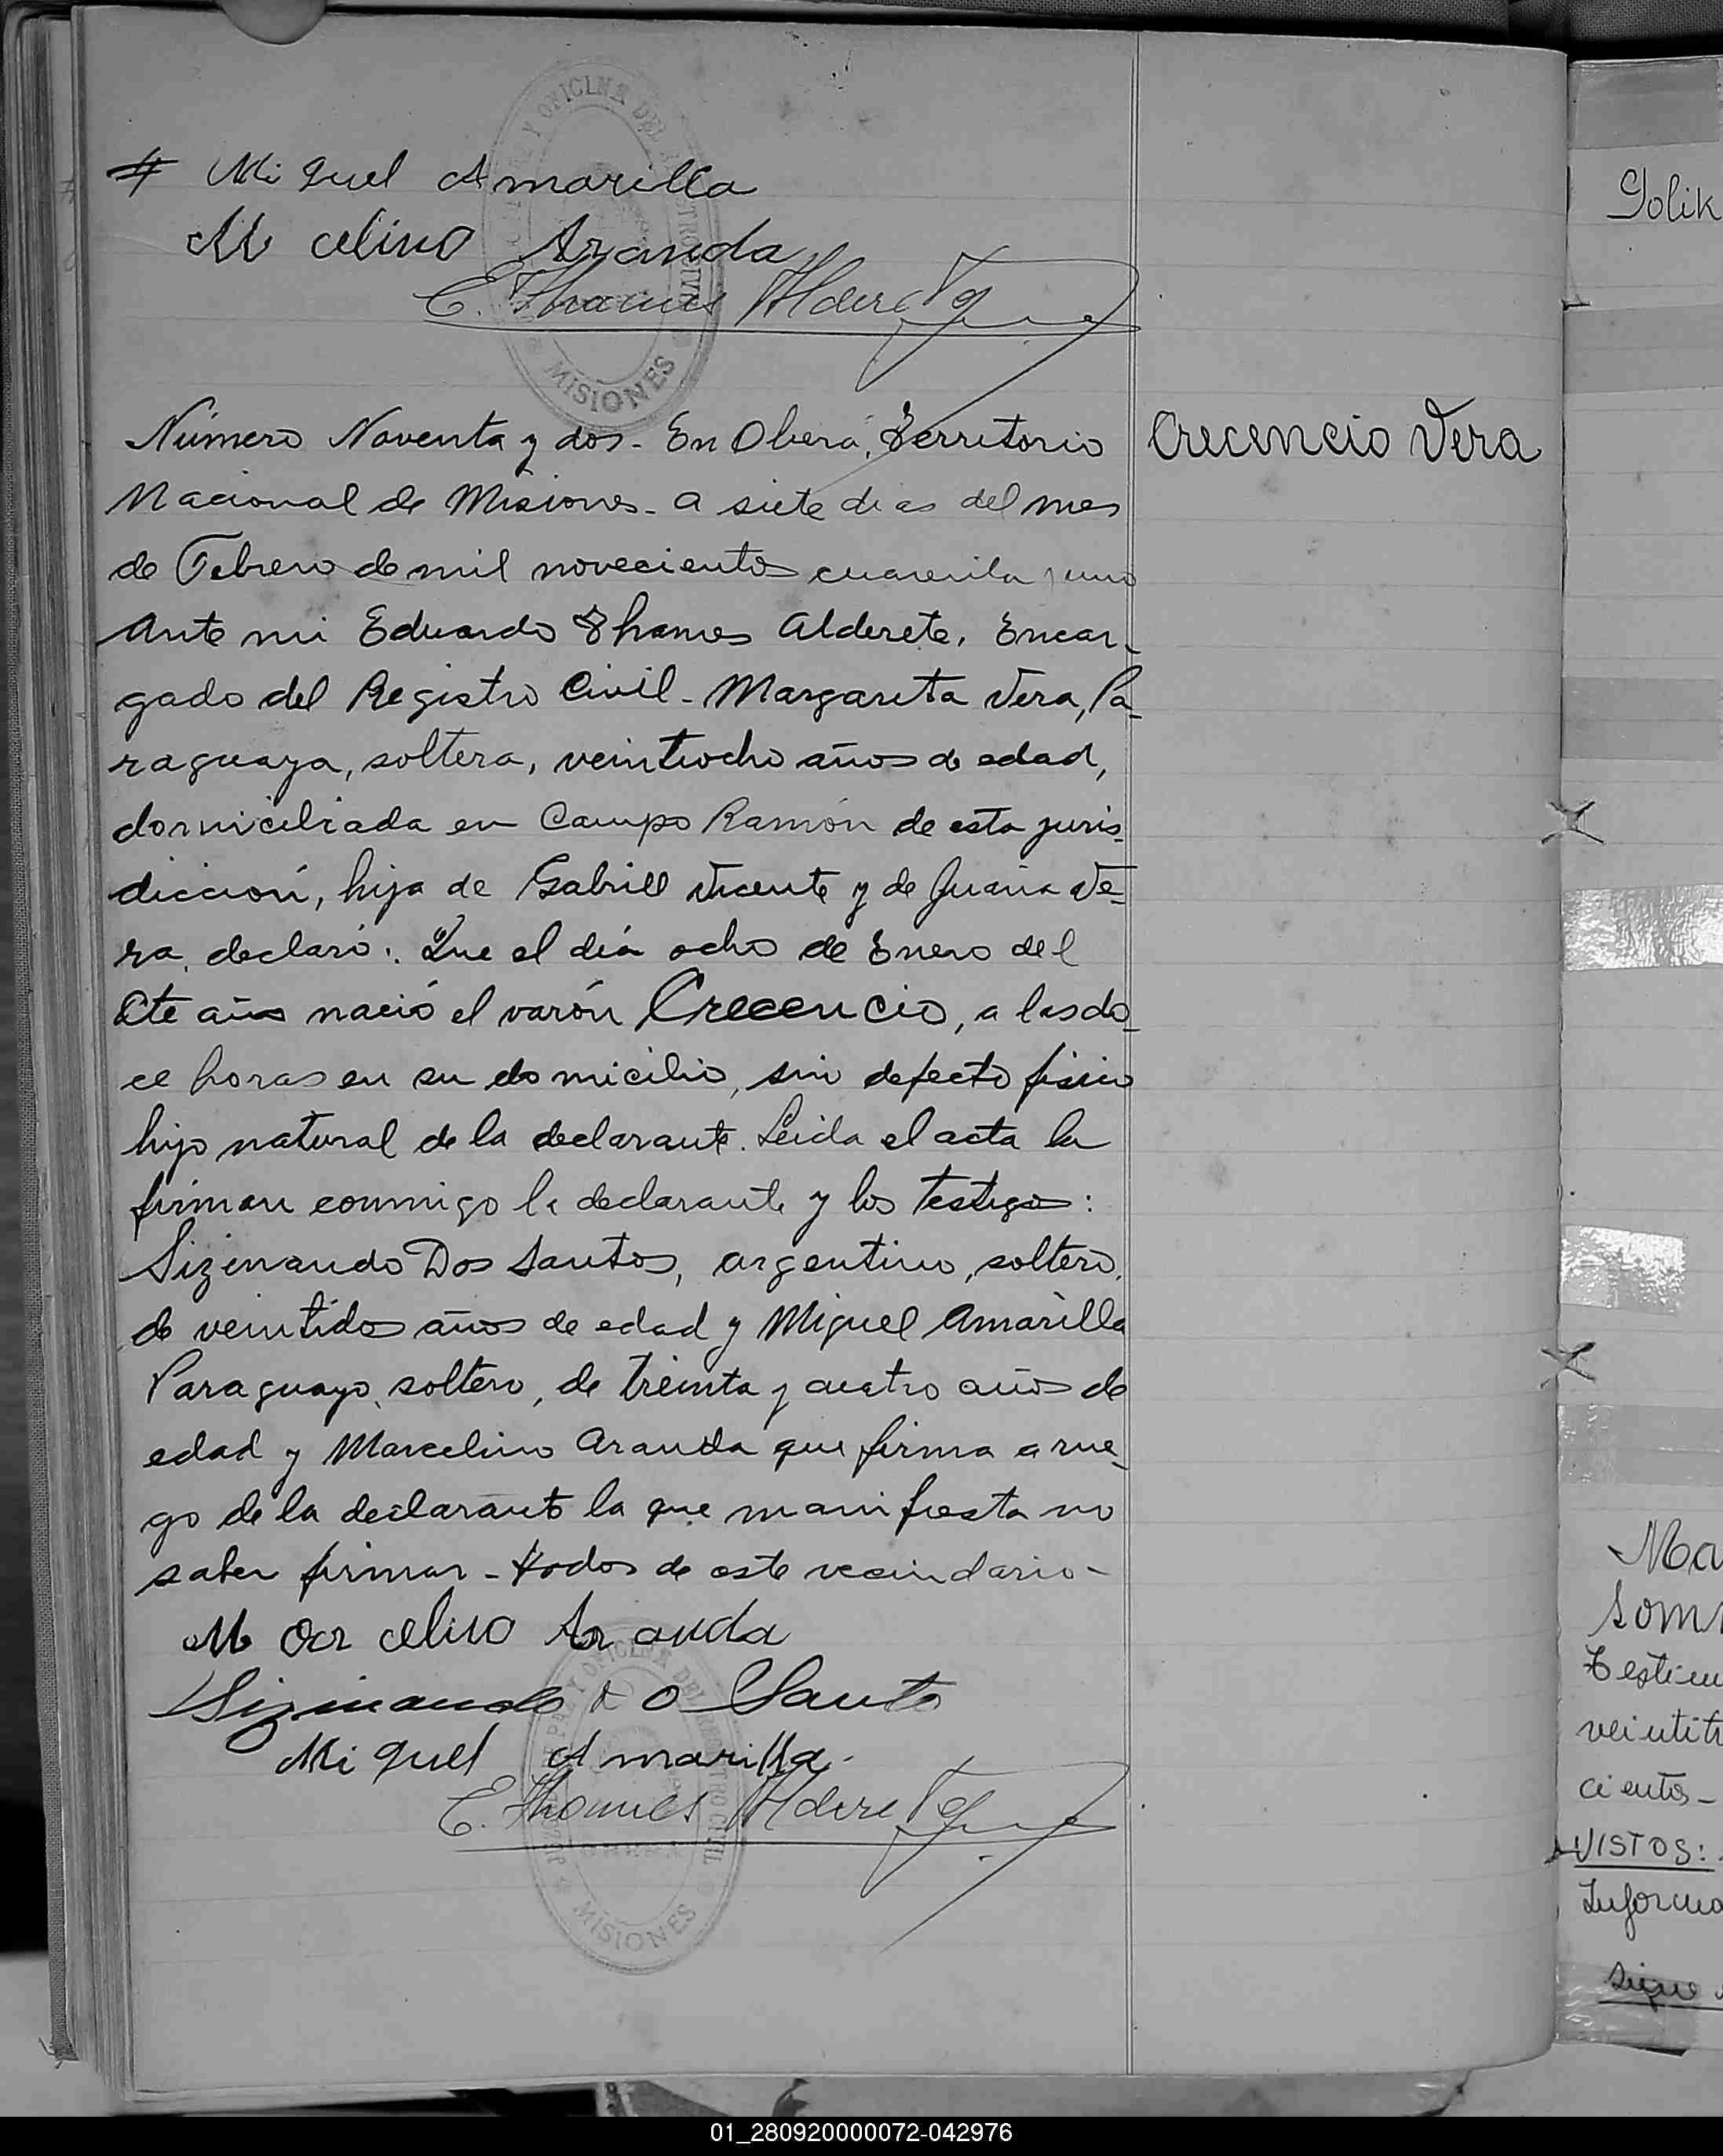 # Miguel Amarilla
M celino Aranda
E. Thames Alderete
Número Noventa y dos - En Oberá, Territorio
Crecencio Vera
Nacional de Misiones - a siete dias del mes
de Febrero de mil novecientos cuarenta y uno
Ante mi Eduardo Thames Alderete, Encar-
gado del Registro Civil - Margareta Vera, Pa-
raguaya, soltera, veintiocho años de edad,
domiciliada en Campo Ramón de esta juris-
dicción, hija de Gabriel Vicente y de Juana Ve-
ra, declaró: Que el día ocho de Enero del
Cte año nació el varón Crecencio, a las do-
ce horas en su domicilio, sin defecto fisico
hijo natural de la declarante. Leida el acta la
firman conmigo la declarante y los testigos:
Sizenando Dos Santos, argentino, soltero,
de veintidos años de edad y Miguel Amarilla
Paraguayo, soltero, de treinta y cuatro años de
edad y Marcelino Aranda que firma a rue-
go de la declarante la que manifiesta no
saber firmar - todos de este vecindario -
Marcelino Aranda
Sizinando do Santo
Miguel Amarilla.
E. Thames Alderete
OFICINA DEL REGISTRO CIVIL
MISIONES
Golik
Ma
Som
Testim
veintit
cientos -
VISTOS:
Informa
Sigue
01_280920000072-042976